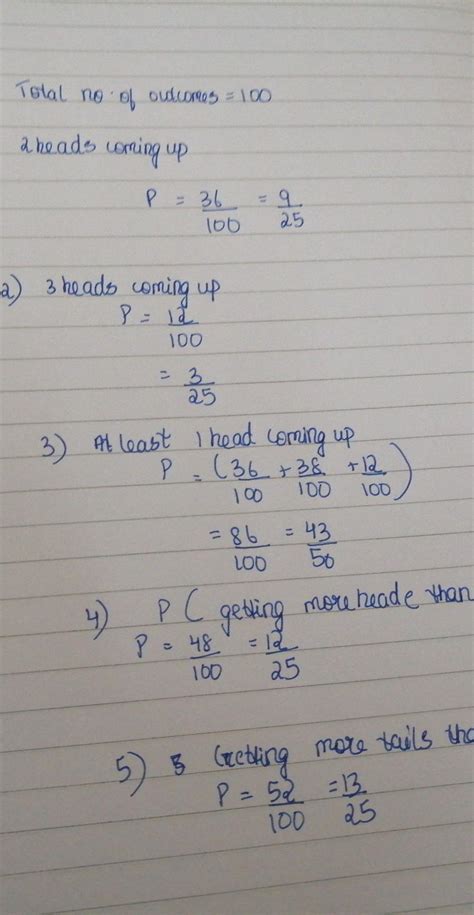 Total no. of outcomes = 100
2 heads coming up
P = 36/100 = 9/25
2) 3 heads coming up
P = 12/100
= 3/25
3) At least 1 head coming up
P = (36/100 + 38/100 + 12/100)
= 86/100 = 43/50
4) P ( getting more heade than
P = 48/100 = 12/25
5) Getting more tails tha
P = 52/100 = 13/25